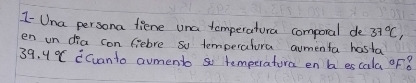 1- Una persona tiene una temperatura comporal de 37°C,
en un dia con fiebre su temperatura aumenta hasta
39.4°C ¿Cuanto aumento su temperatura en la escala °F?